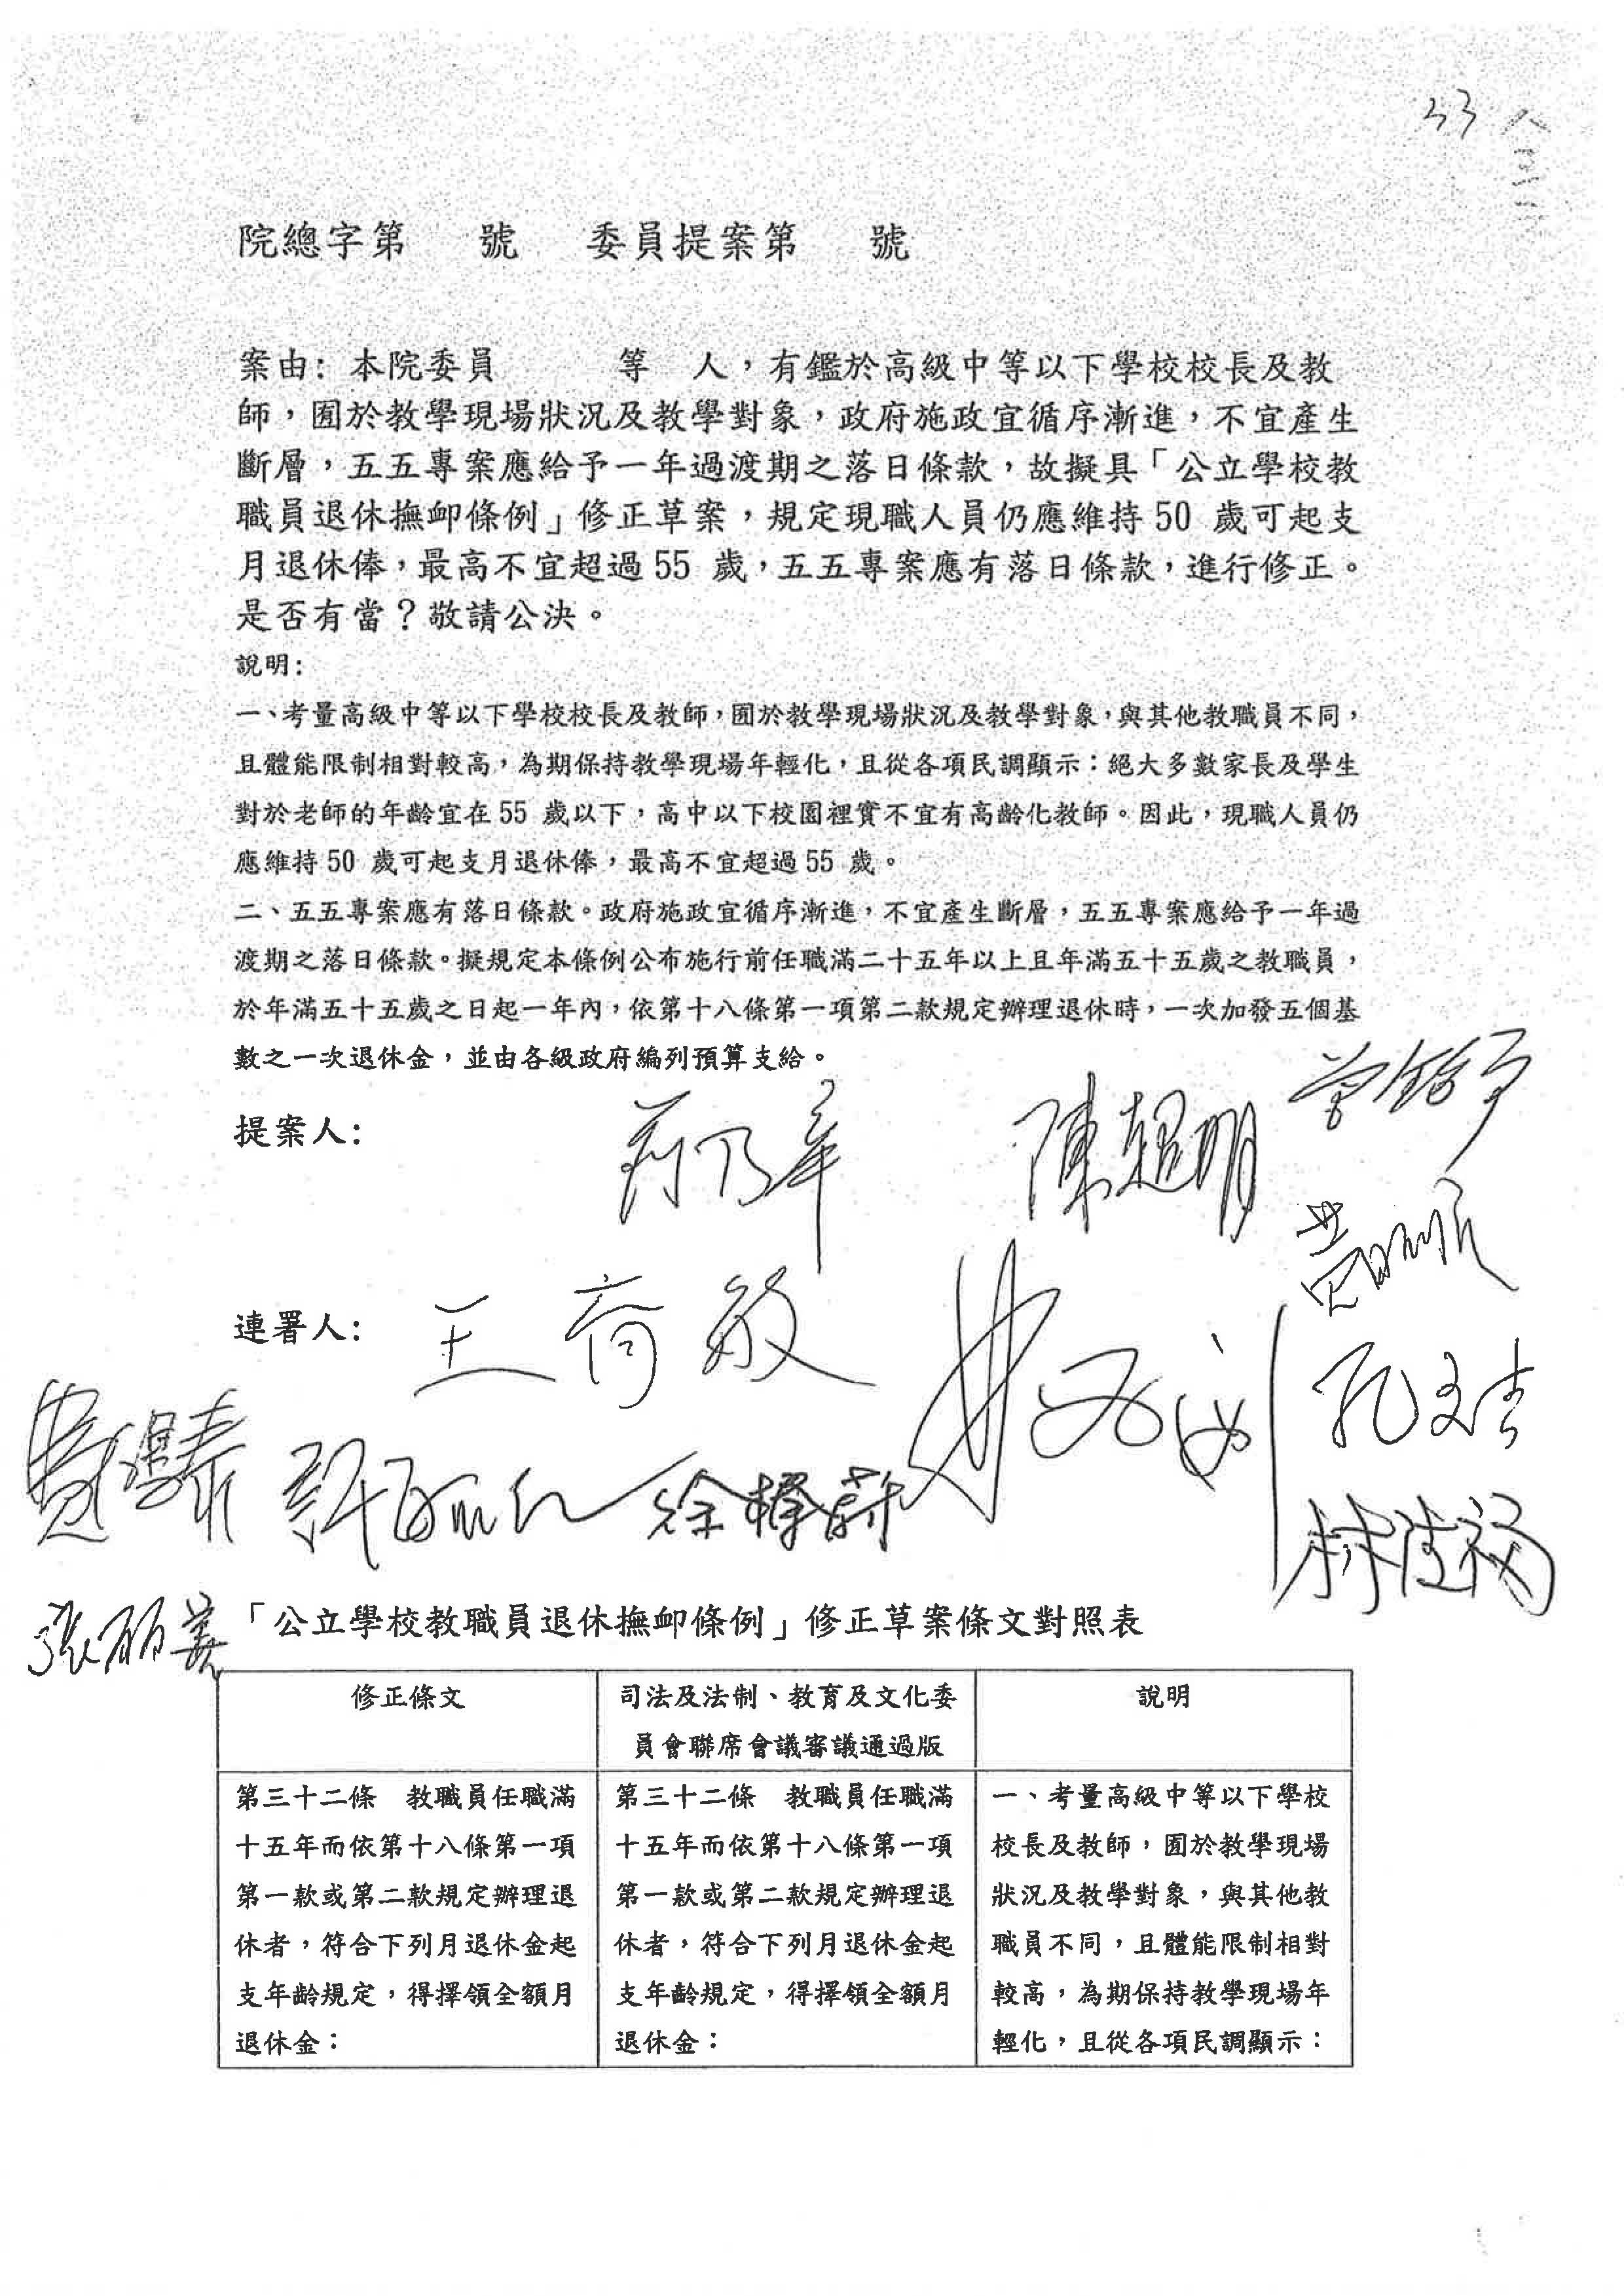 33
院總字第　　號　　委員提案第　　號
案由：本院委員　　　等　人，有鑑於高級中等以下學校校長及教
師，囿於教學現場狀況及教學對象，政府施政宜循序漸進，不宜產生
斷層，五五專案應給予一年過渡期之落日條款，故擬具「公立學校教
職員退休撫卹條例」修正草案，規定現職人員仍應維持 50 歲可起支
月退休俸，最高不宜超過 55 歲，五五專案應有落日條款，進行修正。
是否有當？敬請公決。
說明：
一、考量高級中等以下學校校長及教師，囿於教學現場狀況及教學對象，與其他教職員不同，
且體能限制相對較高，為期保持教學現場年輕化，且從各項民調顯示：絕大多數家長及學生
對於老師的年齡宜在 55 歲以下，高中以下校園裡實不宜有高齡化教師。因此，現職人員仍
應維持 50 歲可起支月退休俸，最高不宜超過 55 歲。
二、五五專案應有落日條款。政府施政宜循序漸進，不宜產生斷層，五五專案應給予一年過
渡期之落日條款。擬規定本條例公布施行前任職滿二十五年以上且年滿五十五歲之教職員，
於年滿五十五歲之日起一年內，依第十八條第一項第二款規定辦理退休時，一次加發五個基
數之一次退休金，並由各級政府編列預算支給。
提案人：
陳超明
連署人：
孔文吉
徐榛蔚
張麗善
「公立學校教職員退休撫卹條例」修正草案條文對照表
修正條文
司法及法制、教育及文化委
員會聯席會議審議通過版
說明
第三十二條　教職員任職滿
十五年而依第十八條第一項
第一款或第二款規定辦理退
休者，符合下列月退休金起
支年齡規定，得擇領全額月
退休金：
第三十二條　教職員任職滿
十五年而依第十八條第一項
第一款或第二款規定辦理退
休者，符合下列月退休金起
支年齡規定，得擇領全額月
退休金：
一、考量高級中等以下學校
校長及教師，囿於教學現場
狀況及教學對象，與其他教
職員不同，且體能限制相對
較高，為期保持教學現場年
輕化，且從各項民調顯示：